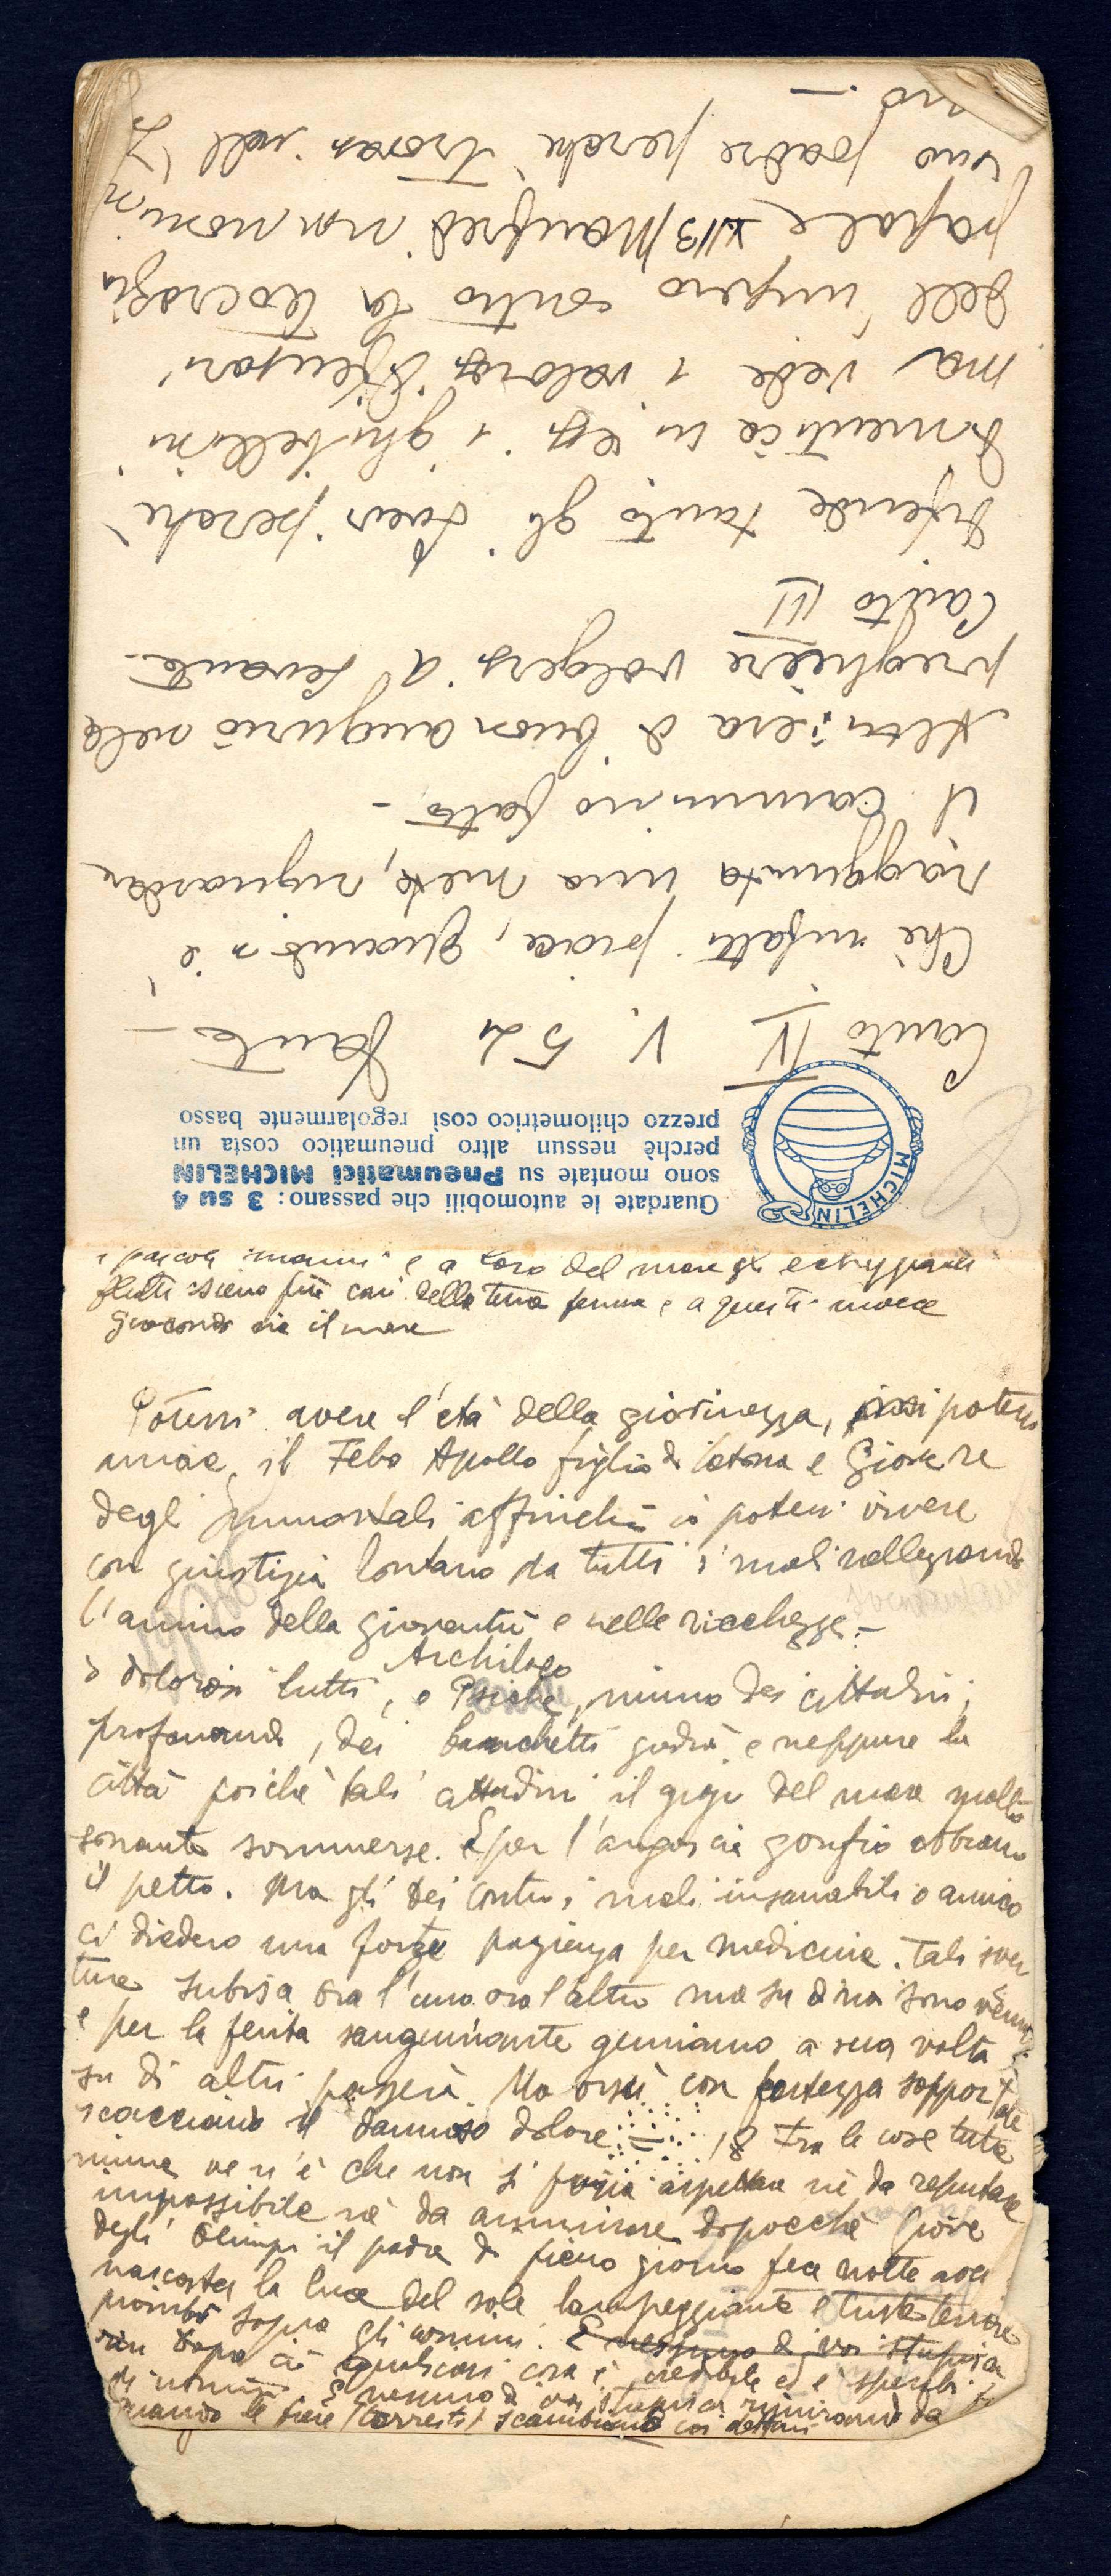 Canto IV V. 52 Dante –
Chè infatti piace, quando si è
raggiunta una meta, riguardare
il cammino fatto –
Altri: era di buon augurio nelle
preghiere volgersi a levante –
Canto III
difende tanto gli Svevi perchè
dimentica in essi i ghibellini
ma vede i valorosi difensori
dell'impero contro la teocrazia
papale XII3 Manfredi non nomina
suo padre perchè trovasi nell'
no –
Guardate le automobili che passano: 3 su 4
sono montate su Pneumatici MICHELIN
perchè nessun altro pneumatico costa un
prezzo chilometrico così regolarmente basso
MICHELIN
i pascoli marini e a loro del mare gli echeggianti
flutti sieno più cari della terra ferma e a questi invece
giocondo sia il mare
Potessi avere l'età della giovinezza, potessi
il Febo Apollo figlio di Latona e Giove re
degli Immortali affinchè io potessi vivere
con giustizia lontano da tutti i mali rallegrando
l'animo della gioventù e nelle ricchezze –
Archiloco
I dolorosi lutti, o niuno dei cittadini
profanando, dei banchetti godrà e neppure la
città poichè tali cittadini il del mare molto
sonante sommerse. E per l'angoscia gonfio abbiamo
il petto. Ma gli dei contro i mali insanabili o amico
ci diedero una forte pazienza per medicina. Tali sven
ture subisce ora l'uno ora l'altro ma su di noi sono venute
e per la ferita sanguinante gemiamo a sua volta
su di altri passerà. Ma orsù con fortezza sopportate
scacciando il dannoso dolore – 18 Fra le cose tutte
niuna ve n'è che non si possa aspettare nè da reputare
impossibile nè da ammirare dopocchè Giove
degli Olimpi il padre di pieno giorno fece notte
nascosta la luce del sole lampeggiante e triste terrore
piombò sopra gli uomini. E nessuno di voi stupisca
dopo ciò qualsiasi cosa è credibile ed è sperabile
E nessuno di voi stupisca rimirando da
quando le fiere (terrestri) scambiano coi delfini